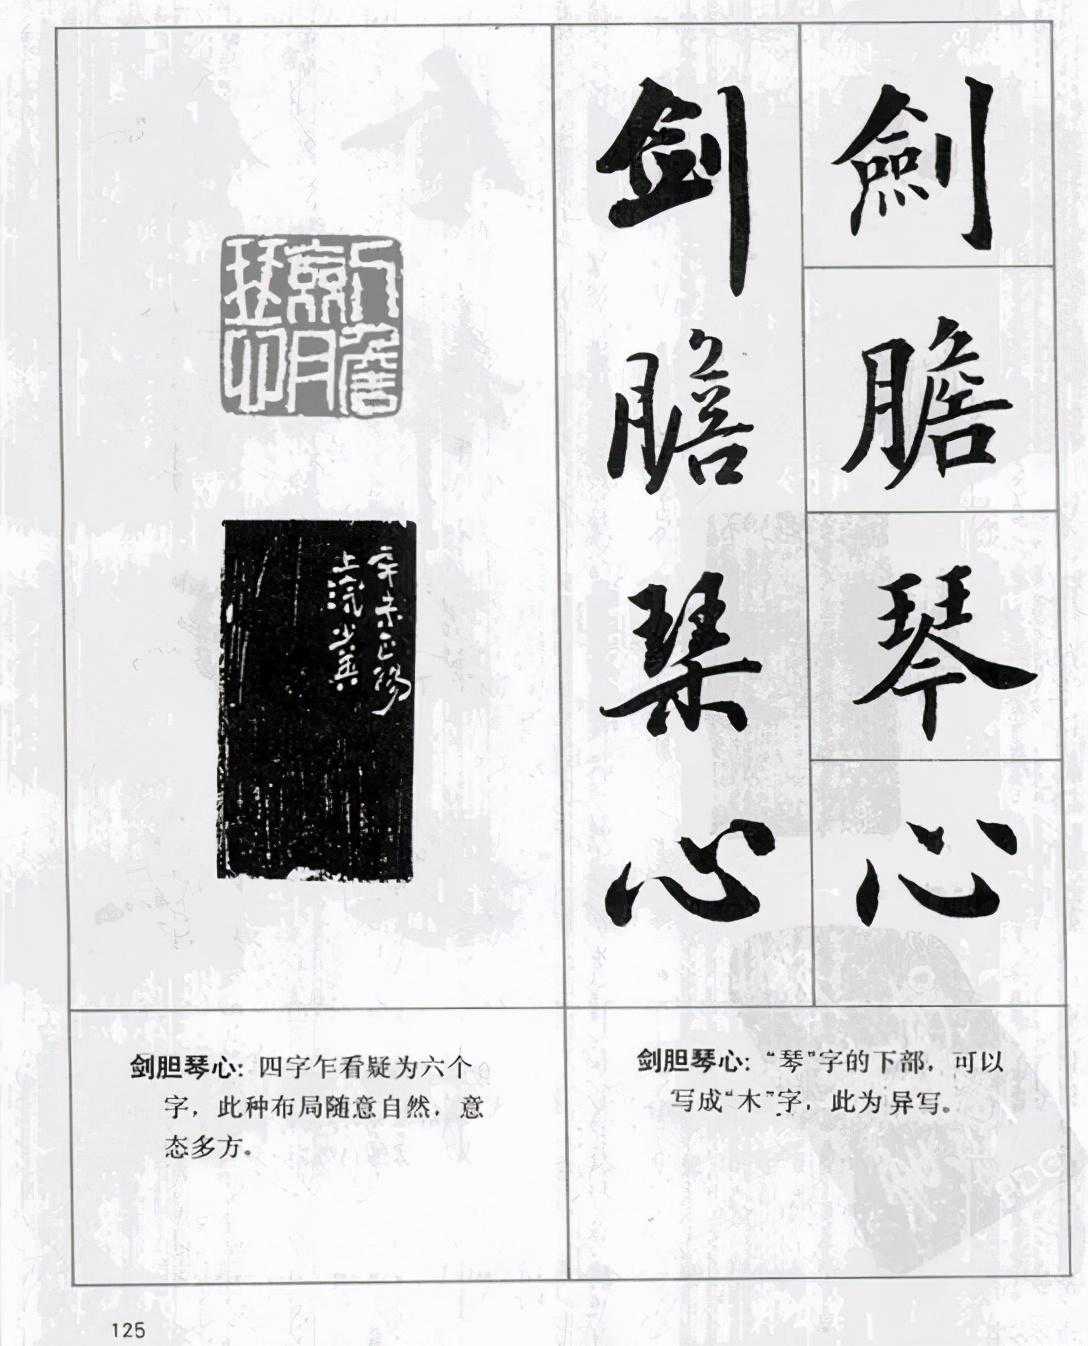 劍膽琴心
劍膽琹心
劍膽琴心
辛未正陽
上浣
剑胆琴心:“琴”字的下部，可以
写成“木”字，此为异写。
剑胆琴心: 四字乍看疑为六个
字，此种布局随意自然，意
态多方。
125